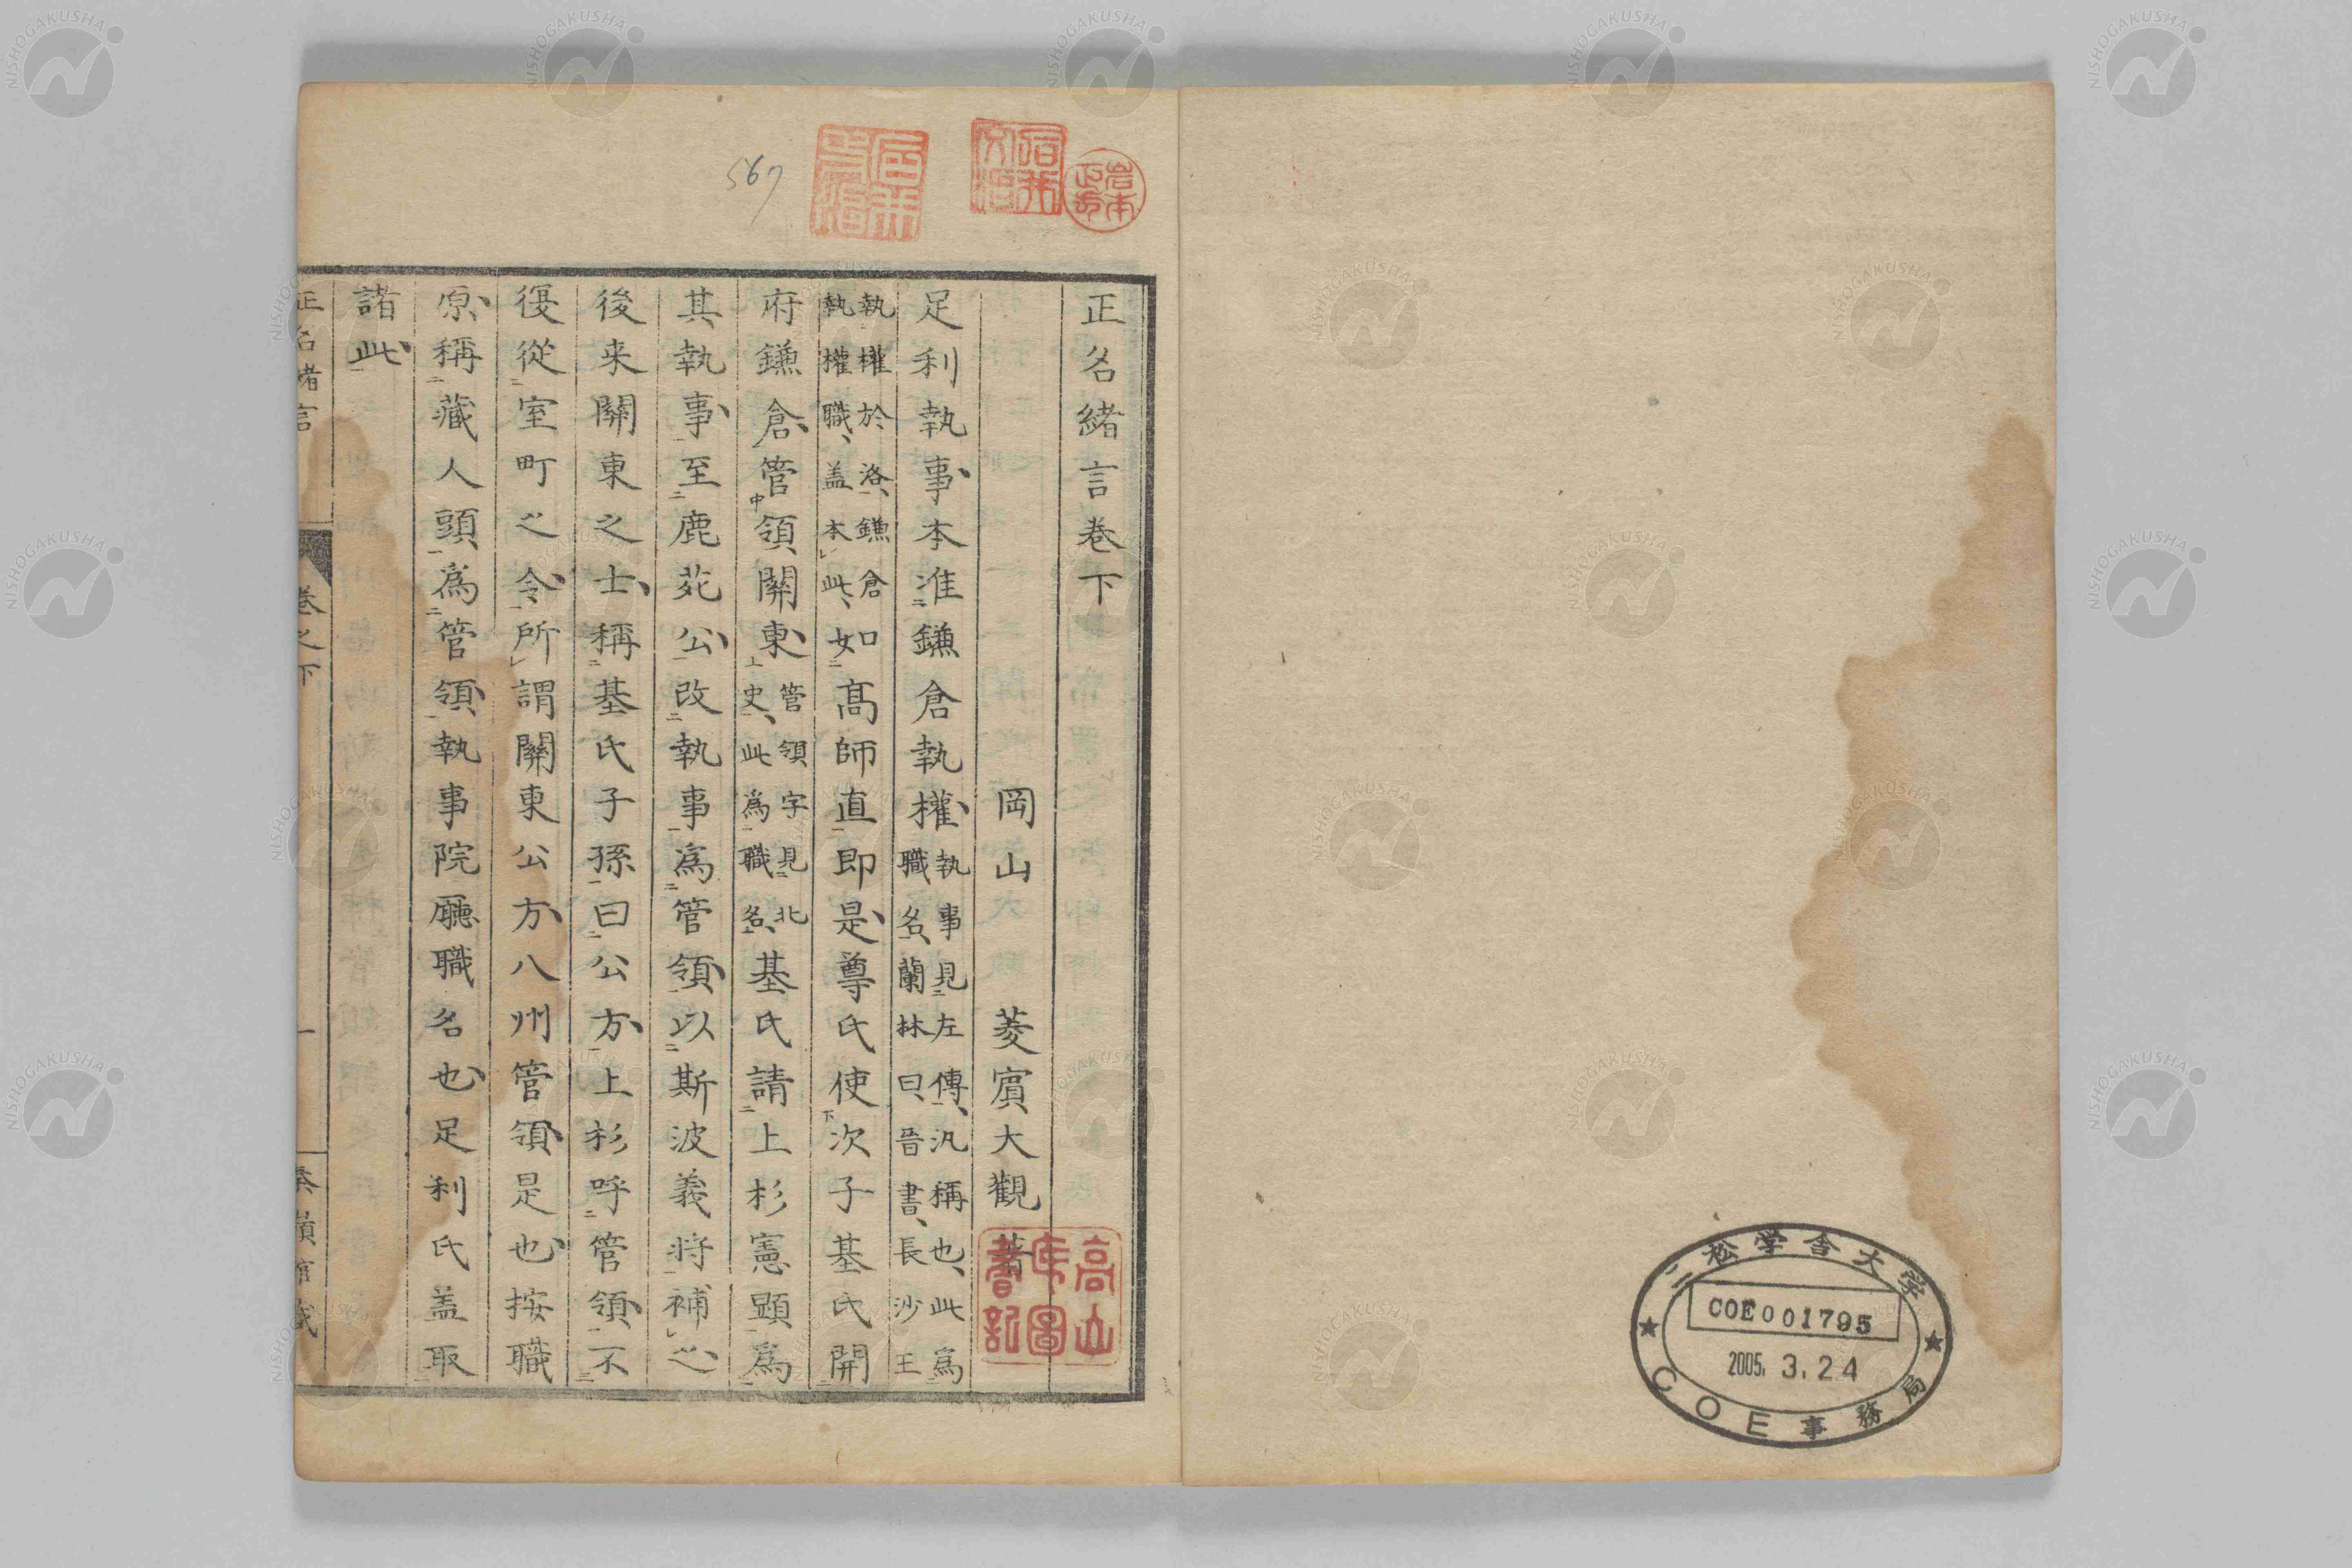 正名緒言巻下
岡山　菱賔大觀　著
足利執事本准鎌倉執權執事見左傳、汎稱也、此爲職名、蘭林曰、晉書、長沙王
執權於洛、鎌倉執權職、盖本此、如高師直即是尊氏使次子基氏開
府鎌倉管領關東管領字見北史、此爲職名、基氏請上杉憲顕爲
其執事至鹿苑公改執事爲管領以斯波義将補之
後来關東之士稱基氏子孫曰公方上杉呼管領不
復從室町之令所謂關東公方八州管領是也按職
原稱藏人頭爲管領執事院廳職名也足利氏盖取
諸此
正名緒言
巻之下
一
567
岩本
高山
圖
書記
二松学舎大学
COE001795
2005. 3. 24
COE事務局
NISHOGAKUSHA